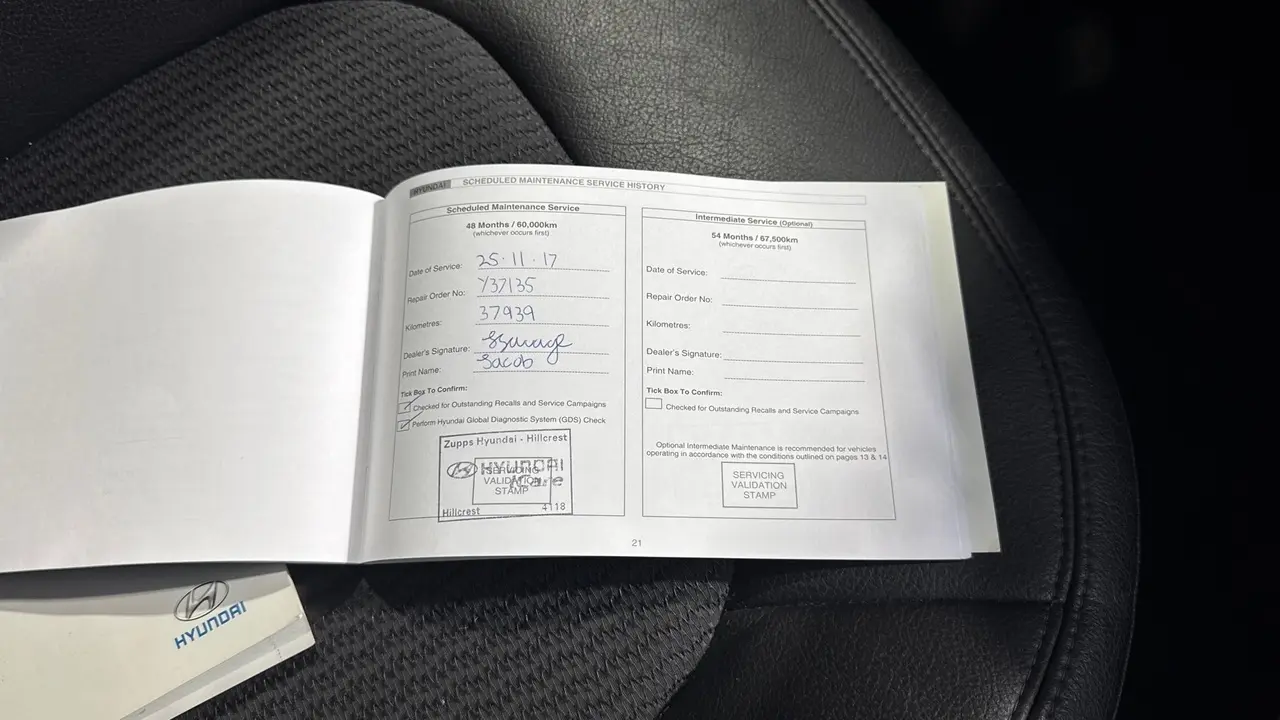 HYUNDAI SCHEDULED MAINTENANCE SERVICE HISTORY
Scheduled Maintenance Service
48 Months / 60,000km
(whichever occurs first)
Date of Service: 25·11·17
Repair Order No: Y37135
Kilometres: 37939
Dealer's Signature:
Print Name: Jacob
Tick Box To Confirm:
Checked for Outstanding Recalls and Service Campaigns
Perform Hyundai Global Diagnostic System (GDS) Check
Zupps Hyundai - Hillcrest
HYUNDAI
iCare
SERVICING
VALIDATION
STAMP
Hillcrest 4118
Intermediate Service (Optional)
54 Months / 67,500km
(whichever occurs first)
Date of Service:
Repair Order No:
Kilometres:
Dealer's Signature:
Print Name:
Tick Box To Confirm:
Checked for Outstanding Recalls and Service Campaigns
Optional Intermediate Maintenance is recommended for vehicles
operating in accordance with the conditions outlined on pages 13 & 14
SERVICING
VALIDATION
STAMP
21
HYUNDAI